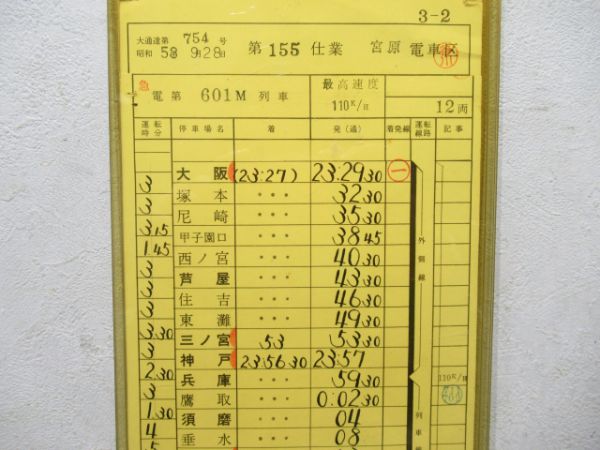 3-2
大通達第 754 号
昭和 58 9月28日 第 155 仕業 宮原 電車区
急 電第 601M 列車 最高速度 110K/H 12両
運転時分 停車場名 着 発(通) 着発線 運転線路 記事
大阪 (23:27) 23:29 30 一
3 塚本 ・・・ 32 30
3 尼崎 ・・・ 35 30
3 15 甲子園口 ・・・ 38 45
1 45 西ノ宮 ・・・ 40 30
3 芦屋 ・・・ 43 30
3 住吉 ・・・ 46 30
3 東灘 ・・・ 49 30
3 30 三ノ宮 53 53 30
3 神戸 23:56 30 23:57
2 30 兵庫 ・・・ 59 30
3 鷹取 ・・・ 0:02 30
1 30 須磨 ・・・ 04
4 垂水 ・・・ 08
外側線
110K/H
列車